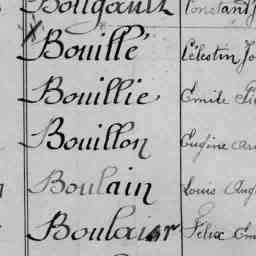 Bougault Constant
Bouillé Célestin Jo
Bouillie Emile
Bouillon Eugène
Boulain Louis Aug
Félix Em